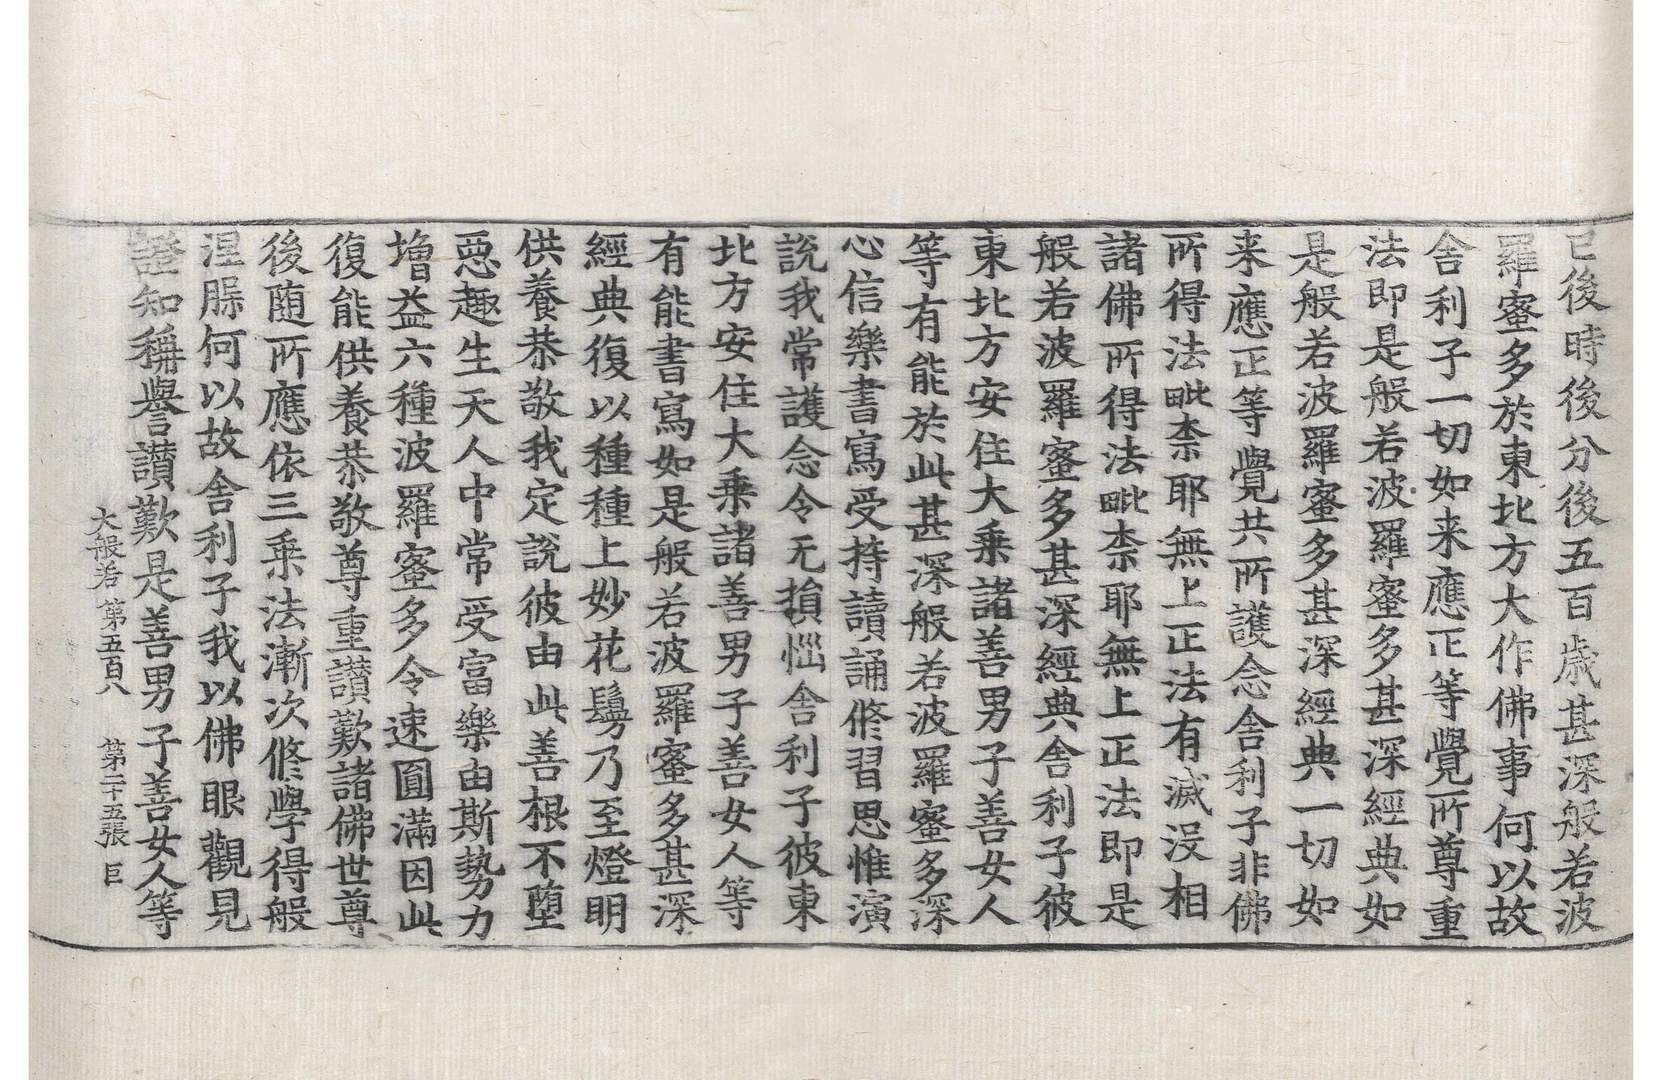 已後時後分後五百歲甚深般若波
羅蜜多於東北方大作佛事何以故
舍利子一切如来應正等覺所尊重
法即是般若波羅蜜多甚深經典如
是般若波羅蜜多甚深經典一切如
来應正等覺共所護念舍利子非佛
所得法毗柰耶無上正法有滅没相
諸佛所得法毗柰耶無上正法即是
般若波羅蜜多甚深經典舍利子彼
東北方安住大乗諸善男子善女人
等有能於此甚深般若波羅蜜多深
心信樂書寫受持讀誦修習思惟演
說我常護念令无損惱舍利子彼東
北方安住大乗諸善男子善女人等
有能書寫如是般若波羅蜜多甚深
經典復以種種上妙花鬘乃至燈明
供養恭敬我定說彼由此善根不墮
惡趣生天人中常受富樂由斯勢力
增益六種波羅蜜多令速圓滿因此
復能供養恭敬尊重讃歎諸佛世尊
後随所應依三乗法漸次修學得般
涅槃何以故舍利子我以佛眼觀見
證知稱譽讃歎是善男子善女人等
大般若第五百八 第二十五張 巨